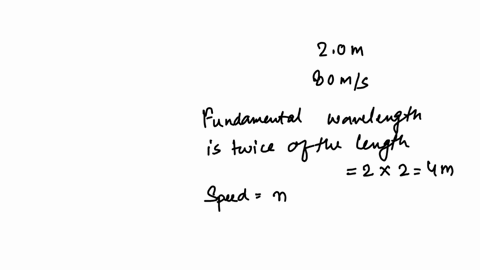 2.0 m
80 m/s
Fundamental wavelength
is twice of the length
= 2 × 2 = 4m
Speed = n